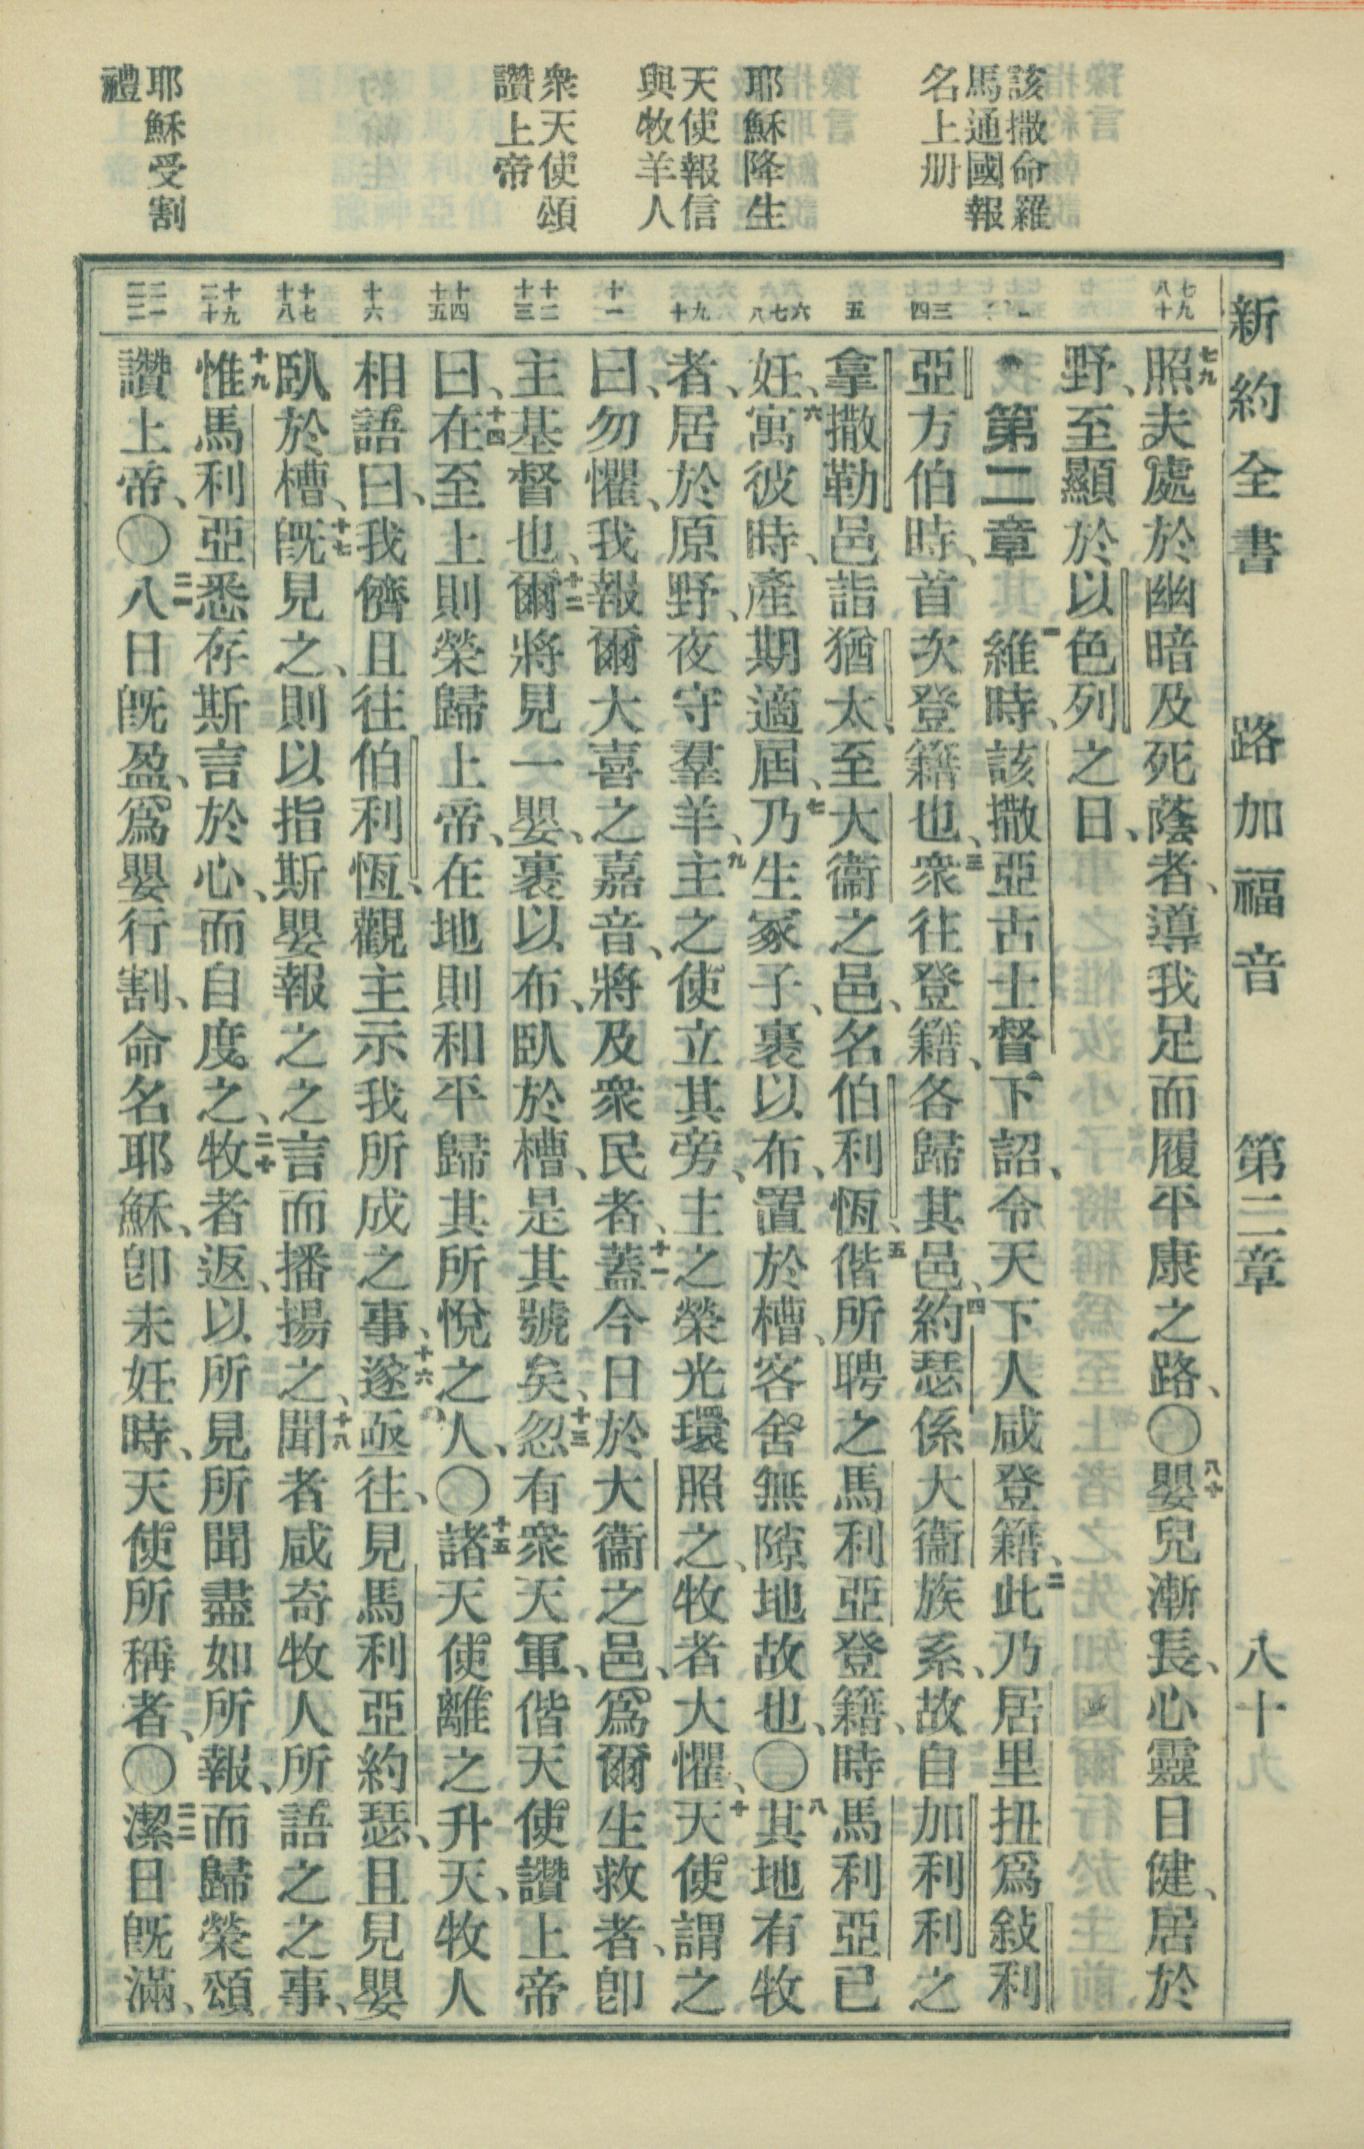 新約全書 路加福音 第二章 八十
該撒命羅
馬通國報
名上册
耶穌降生
天使報信
與牧羊人
衆天使頌
讚上帝
耶穌受割
禮
七九 八十
一 二
三 四
五
六 七 八
九 十
十一
十二 十三
十四 十五
十六
十七 十八
十九 二十
二一 二二
七九照夫處於幽暗及死蔭者、導我足而履平康之路、〇八十嬰兒漸長、心靈日健、居於
野、至顯於以色列之日、
第二章 一維時、該撒亞古士督下詔、令天下人咸登籍、二此乃居里扭爲敍利
亞方伯時、首次登籍也、三衆往登籍、各歸其邑、四約瑟係大衞族系、故自加利利之
拿撒勒邑詣猶太、至大衞之邑、名伯利恆、五偕所聘之馬利亞登籍、時馬利亞已
妊、六寓彼時、產期適屆、七乃生冢子、裹以布、置於槽、客舍無隙地故也、〇八其地有牧
者、居於原野、夜守羣羊、九主之使立其旁、主之榮光環照之、牧者大懼、十天使謂之
曰、勿懼、我報爾大喜之嘉音、將及衆民者、十一蓋今日於大衞之邑、爲爾生救者、卽
主基督也、十二爾將見一嬰、裹以布、臥於槽、是其號矣、十三忽有衆天軍、偕天使讚上帝
曰、十四在至上則榮歸上帝、在地則和平歸其所悅之人、〇十五諸天使離之升天、牧人
相語曰、我儕且往伯利恆、觀主示我所成之事、十六遂亟往、見馬利亞約瑟、且見嬰
臥於槽、十七旣見之、則以指斯嬰報之之言而播揚之、十八聞者咸奇牧人所語之之事、
十九惟馬利亞悉存斯言於心、而自度之、二十牧者返、以所見所聞盡如所報、而歸榮頌
讚上帝、〇二一八日旣盈、爲嬰行割、命名耶穌、卽未妊時、天使所稱者、〇二二潔日旣滿、